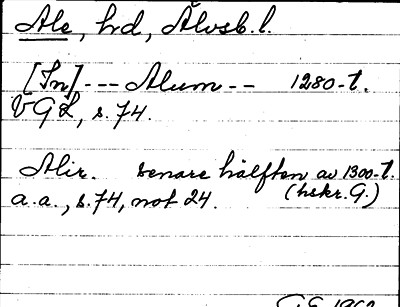 Ale, hd, Älvsb. l.
[In] --- Alum -- 1280-t.
VGL, s. 74.
Alir. senare hälften av 1300-t.
a.a., s. 74, not 24. (hskr. G.)